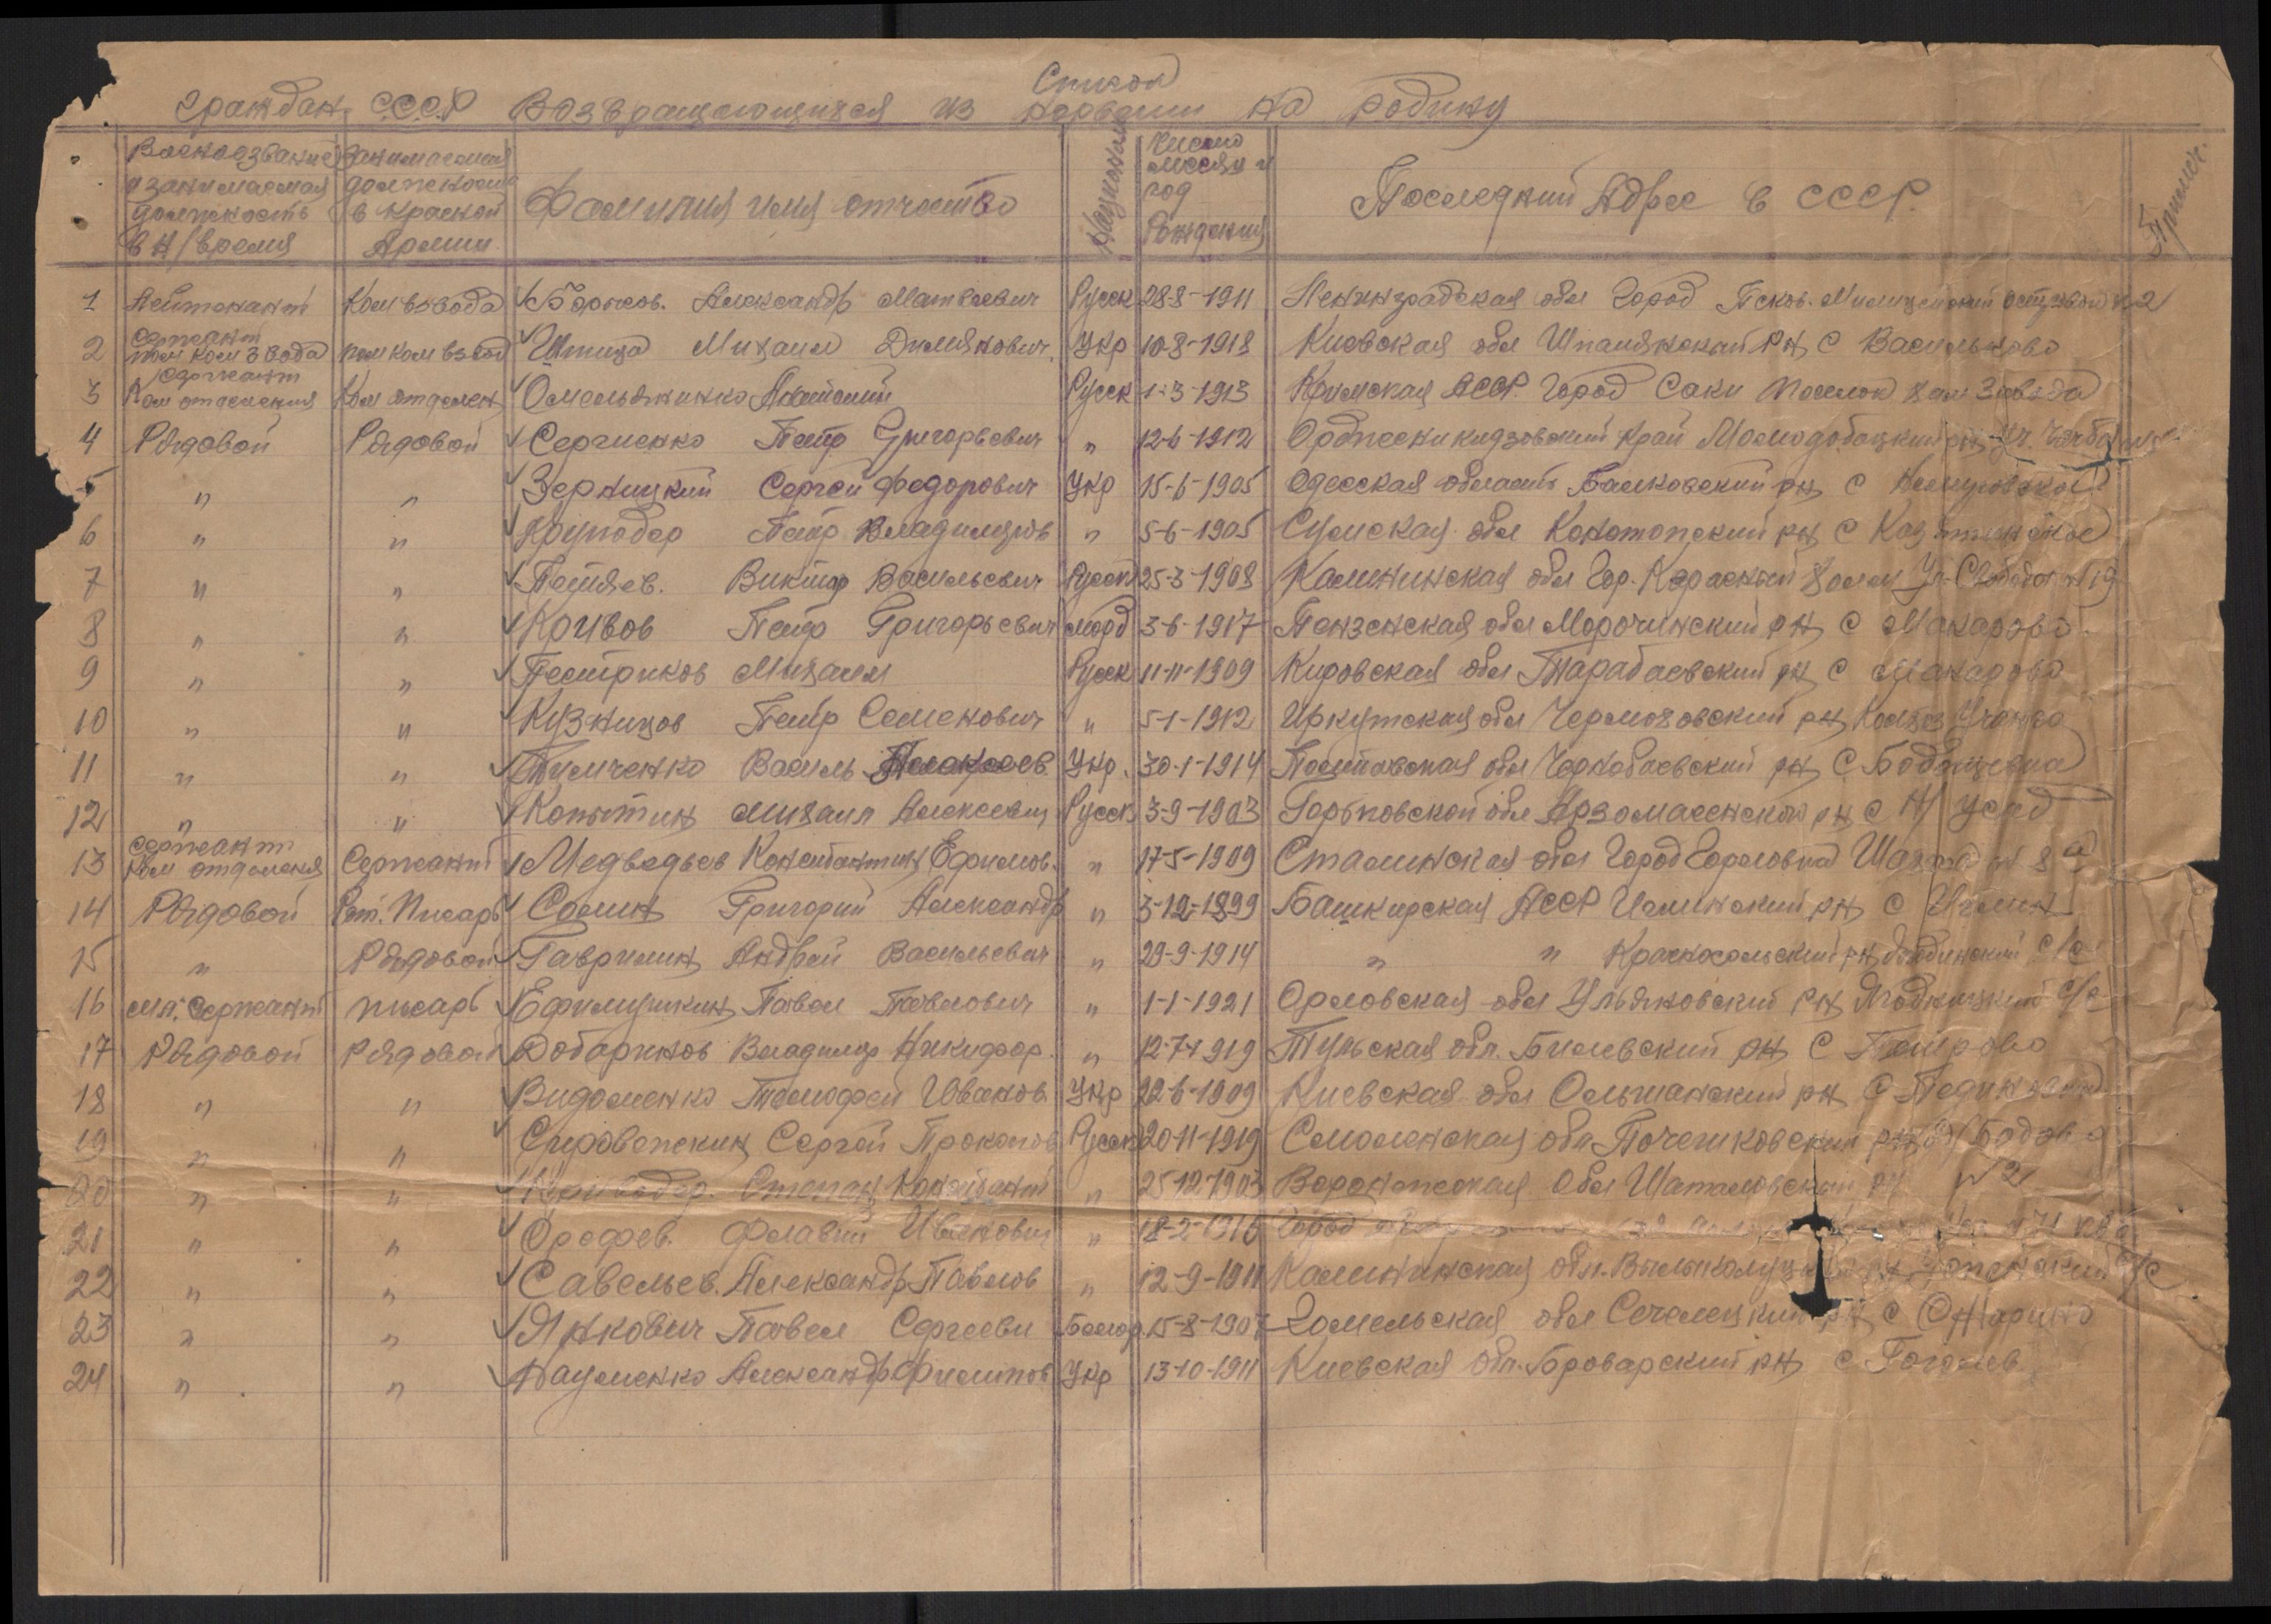 Список
граждан С.С.С.Р возвращающихся из Норвегии на родину
Военоезвание и занимаемая должность в н/время
Занимаемая должность в Красной Армии.
Фамилия имя отчество
Национальн
Число месяц и год Рождения
Последний Адрес в СССР.
Примеч.
1 Лейтенант Ком взвода Борисов. Александр Матвеевич Русск 28-8-1911 Ленинградская обл Город Псков.
2 Сержант пом ком взвода пом ком взвод Птица Михаил Демянович Укр 10-8-1918 Киевская обл Шполянский рн с Васильково
3 Сержант Ком отделения Ком отделен Омельяненко Анатолий Русск 1-3-1913 Крымская АССР. Город Саки поселок Хим Завода
4 Рядовой Рядовой Сергиенко Петр Григорьевич " 12-6-1912 Ордженикидзовский край рн
5 " " Зерницкий Сергей Федорович Укр 15-6-1905 Одесская область Балковский рн с
6 " " Петр Владимиров " 5-6-1905 Сумская обл Конотопский рн с
7 " " Петяев. Виктор Васильевич Русск 25-3-1908 Калининская обл Гор. Красный Холм Ул. Свободы № 19
8 " " Кривов Петр Григорьевич морд 3-6-1917 Пензенская обл рн с Макарово.
9 " " Пестриков Михаил Русск 11-11-1909 Кировская обл рн с Макарово
10 " " Кузницов Петр Семенович " 5-1-1912 Иркутская обл Черемховский рн
11 " " Василь Укр. 30-1-1914 Полтавская обл Чорнобаевский рн с
12 " " Копытин Михаил Алексеевич Русск 3-9-1903 Горьковской обл Арзомасенский рн с Н/ усад
13 Сержант ком отделения Сержант Медведьев Константин Ефимов. " 17-5-1909 Сталинская обл Город Горловка Шахта № 8а
14 Рядовой Рот. Писарь Сомин Григорий Александр " 3-12-1899 Башкирская АССР рн с
15 " Рядовой Гаврилин Андрей Васильевич " 29-9-1914 " " Красносольский рн с/с
16 мл. Сержант писарь Ефимушкин Павел Павлович " 1-1-1921 Орловская обл Ульяновский рн Ягодницкий с/с
17 Рядовой Рядовой Добариков Владимир Никифор. " 12-7-1919 Тульская обл. Билевский рн с Петрово
18 " " Видоменко Тимофей Иванов Укр 22-6-1909 Киевская обл Ольшанский рн с
19 " " Сергей Прокопов Русск 20-11-1919 Смоленская обл рн
20 " " Степан Константи " 25-12-1903 Воронежская обл Шаталовский рн
21 " " Орефев. Флавий Иванович " 18-2-1916 Город
22 " " Савельев. Александр Павлов " 12-9-1911 Калининская обл. рн с/с
23 " " Янкович Павел Сергееви Белор. 15-8-1907 Гомельская обл рн с
24 " " Науменко Александр Филипов Укр 13-10-1911 Киевская обл. Броварский рн с Гоголев.